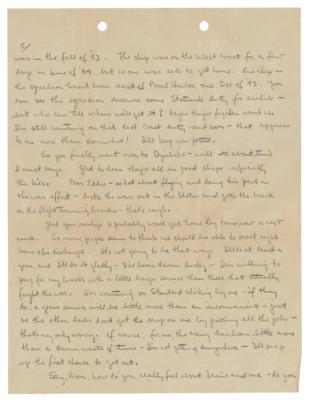 5/
was in the fall of '43. The ship was on the West coast for a few
days in June of '44, but no one was able to get home. One ship in
the squadron hasn't been east of Pearl Harbor since Dec of '43. You
can see this squadron deserves some Stateside duty for awhile -
but who can tell when we'll get it? Maybe they've forgotten about us.
I'm still counting on that East Coast duty - and soon - that appeals
to me more than somewhat! I'll keep you posted.
So you finally went over to - well about time
I must say. Glad to hear they're all in good shape - especially
the kids. Poor Eddie - so hot about flying and doing his part in
the war effort - lasts the war out in the States and gets the break
on the flight training - that's rough.
Dad you realize I probably won't get home by tomorrow or next
week. So many people seem to think we should be able to head right
home and discharge. It's not going to be that way. I'll do at least a
year, and I'll do it gladly - I've been damn lucky - I'm willing to
pay for my breaks with a little longer service than those that really
fought the war. I'm counting on Standard sticking by me - if they
do, a year's service would be little more than an inconvenience - just
so the other lads don't get the drop on me by grabbing all the jobs -
that's my only worry. Of course, for me the Navy has been little more
than a damn waste of time - I'm not getting anywhere - I'll jump
up the first chance to get out.
Say, Mom, how do you really feel about and me - do you